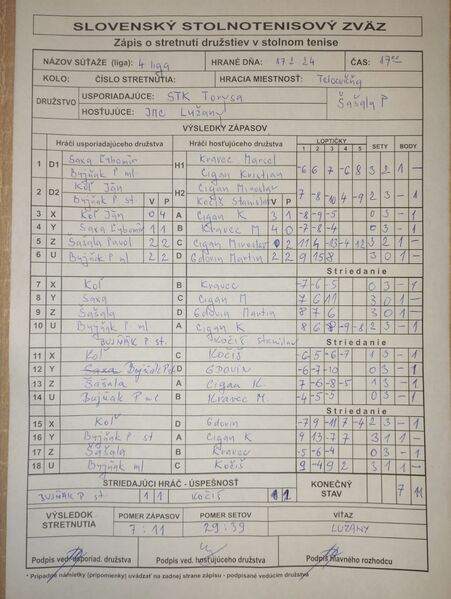 SLOVENSKÝ STOLNOTENISOVÝ ZVÄZ
Zápis o stretnutí družstiev v stolnom tenise
NÁZOV SÚŤAŽE (liga): 4 liga HRANÉ DŇA 17.2.24 ČAS: 17 00
KOLO: ČÍSLO STRETNUTIA: HRACIA MIESTNOSŤ:
DRUŽSTVO USPORIADAJÚCE: STK Torysa Šašala P
HOSŤUJÚCE: JMC Lužany
VÝSLEDKY ZÁPASOV
Hráči usporiadajúceho družstva Hráči hosťujúceho družstva LOPTIČKY SETY BODY
1 2 3 4 5
1 D1 Saxa Ľubomír H1 Kravec Marcel -6 6 7 -6 8 3 2 1 -
Byjňak P ml Cigan Kristian
2 D2 Koľ Ján H2 Cigan Miroslav 7 -8 -10 4 -9 2 3 - 1
Byjňak P st V P Kočiš Stanislav V P
3 X Koľ Ján 0 4 A Cigan K 3 1 -8 -9 -5 0 3 - 1
4 Y Saxa Ľubomír 1 1 B Kravec M 4 0 -7 -8 -4 0 3 - 1
5 Z Šašala Pavol 2 2 C Cigan Miroslav 0 2 11 4 -13 -4 12 3 2 1 -
6 U Byjňak P ml 2 2 D Gdovin Martin 2 2 9 15 8 3 0 1 -
Striedanie
7 X Koľ B Kravec -7 -6 -5 0 3 - 1
8 Y Saxa C Cigan M 7 6 11 3 0 1 -
9 Z Šašala D Gdovin Martin 8 7 6 3 0 1 -
10 U Byjňak P ml A Cigan K 8 6 -8 -9 -8 2 3 - 1
BUJŇÁK P st. Kočiš Stanislav
11 X Koľ C Kočiš -6 5 -6 -7 1 3 - 1
12 Y Saxa Bujňak P st D GDOVIN -6 -7 -10 0 3 - 1
13 Z Šašala A Cigan K. -7 -6 8 -5 1 3 - 1
14 U Bujňak P ml B Kravec M. -4 -5 -5 0 3 - 1
Striedanie
15 X Koľ D Gdovin -7 9 -11 7 -4 2 3 - 1
16 Y Byjňak P st A Cigan K 9 13 -7 7 3 1 1 -
17 Z Šašala B Kravec -5 -6 -4 0 3 - 1
18 U Byjňak ml C Kočiš 9 -4 9 2 3 1 1 -
STRIEDAJÚCI HRÁČ - ÚSPEŠNOSŤ KONEČNÝ STAV 7 11
BUJŇÁK P st 1 1 KOČIŠ 1 1
VÝSLEDOK STRETNUTIA POMER ZÁPASOV POMER SETOV VÍŤAZ
7 : 11 29 : 39 LUŽANY
Podpis ved. usporiad. družstva Podpis ved. hosťujúceho družstva Podpis hlavného rozhodcu
* Prípadné námietky (pripomienky) uvádzať na zadnej strane zápisu - podpísané vedúcim družstva